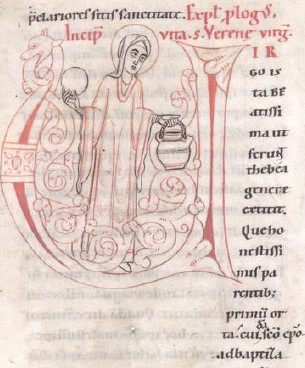 p̱clariores sitis sanctitate. Expl̄ ꝓlogus,
Incip̄ vita. s. Verene virḡ.
I R
GO IS
ta BE
atissi
ma ui
thebea
genere
extitit.
Que ho
nestissi
mis pa
rentib;
primū or
ta. cui. sc̄o ep̄o
ad baptis̄a